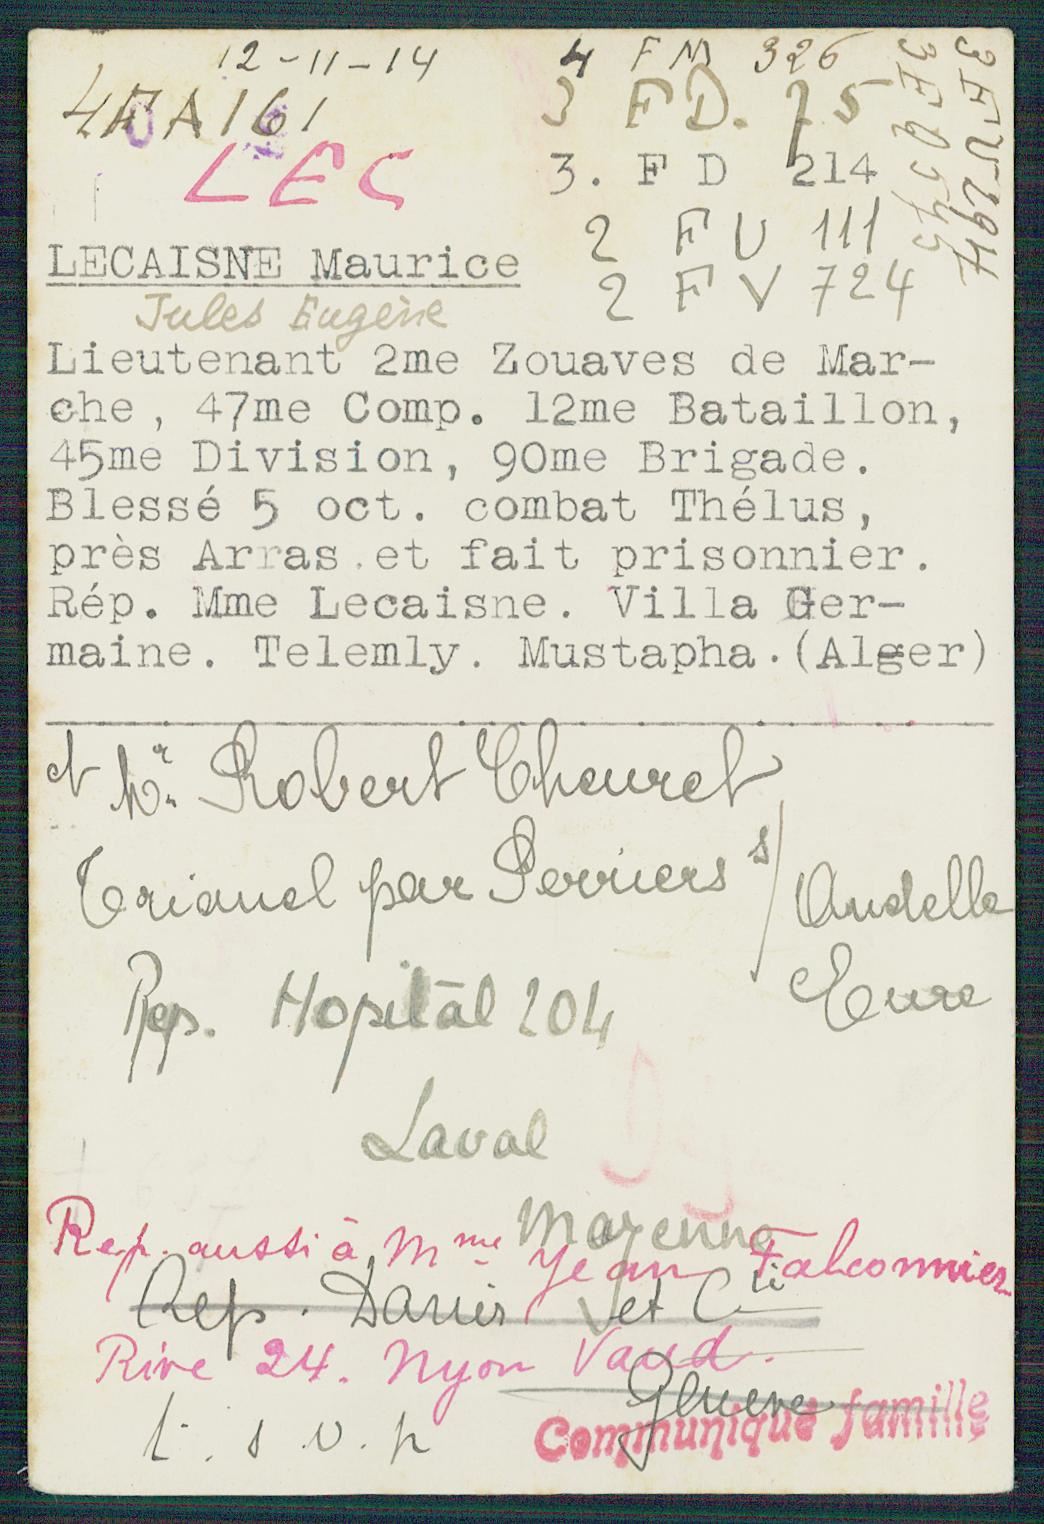 12-11-14
4 FM 326
4AA161
3 FD. 75
LEC
3. FD 214
3EQ545
3EV297
2 FU 111
2 FV 724
LECAISNE Maurice
Jules Eugène
Lieutenant 2me Zouaves de Mar-
che, 47me Comp. 12me Bataillon,
45me Division, 90me Brigade.
Blessé 5 oct. combat Thélus,
près Arras et fait prisonnier.
Rép. Mme Lecaisne. Villa Ger-
maine. Telemly. Mustapha.(Alger)
et Mr. Robert
par Perriers s/ Andelle
Eure
Rep. Hopital 204
Laval
Mayenne
Rep. aussi à Mme Jean Falconnier
Rep. et Cie
Rive 24. Nyon Vaud.
Genève
t. s. v. p
Communiqué famille